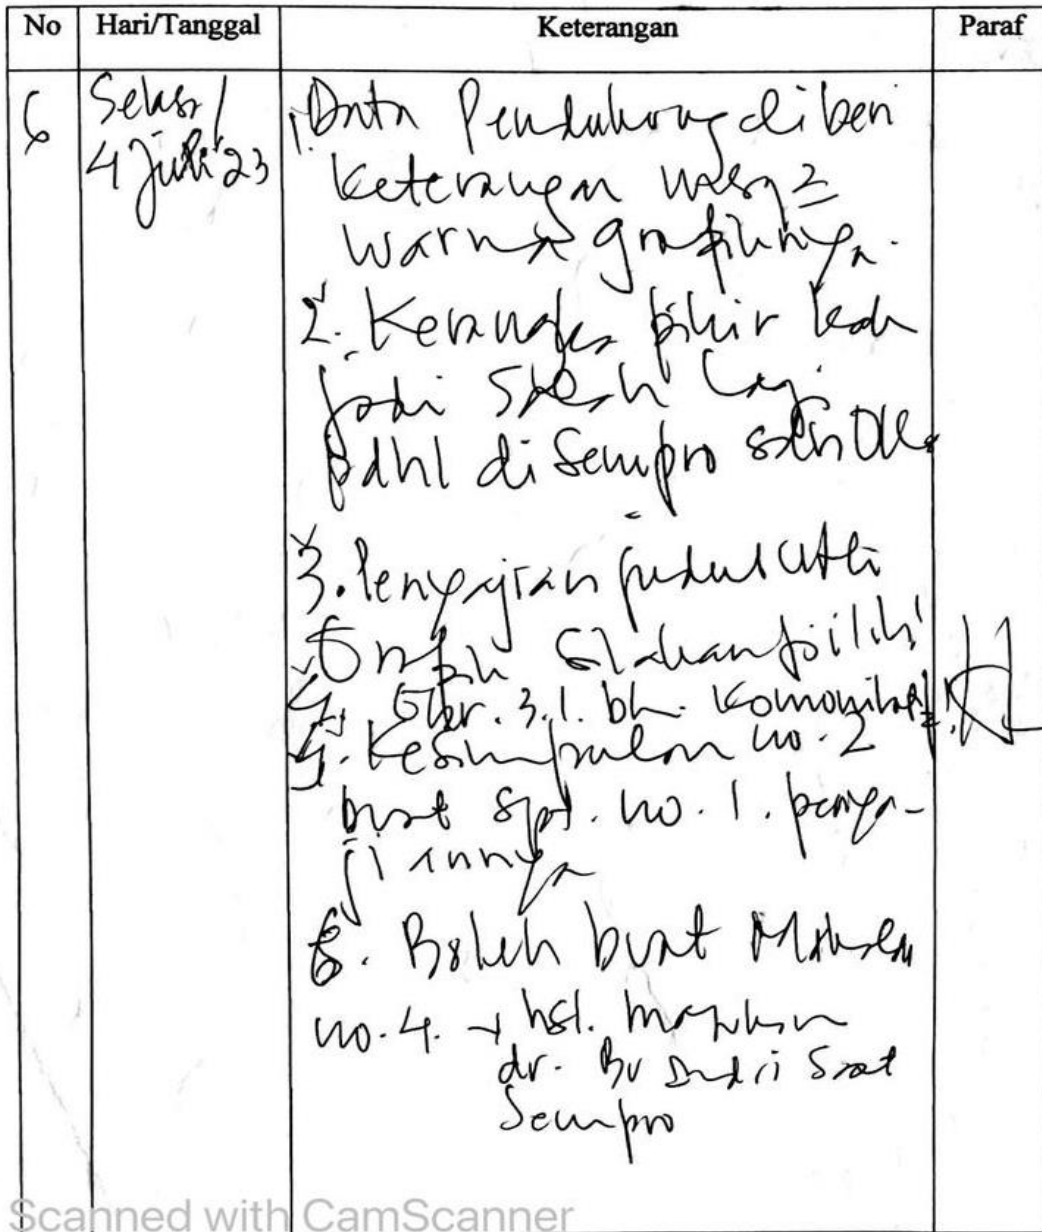 No Hari/Tanggal Keterangan Paraf
6 Selasa/
4 Juli '23
1. Data Pendukung diberi
keterangan masg2
warna grafiknya.
2. Kerangka pikir kok
jadi salah lagi
pdhl di Sempro sdh OK
3. Penyajian judul utk
Grafik silahkan pilih!
4. Gbr. 3.1. bh.
4. Kesimpulan no. 2
buat spt. no. 1. penya-
jiannya
6. Boleh buat
no. 4. → hsl. masukan
dr. Bu saat
Sempro
Scanned with CamScanner